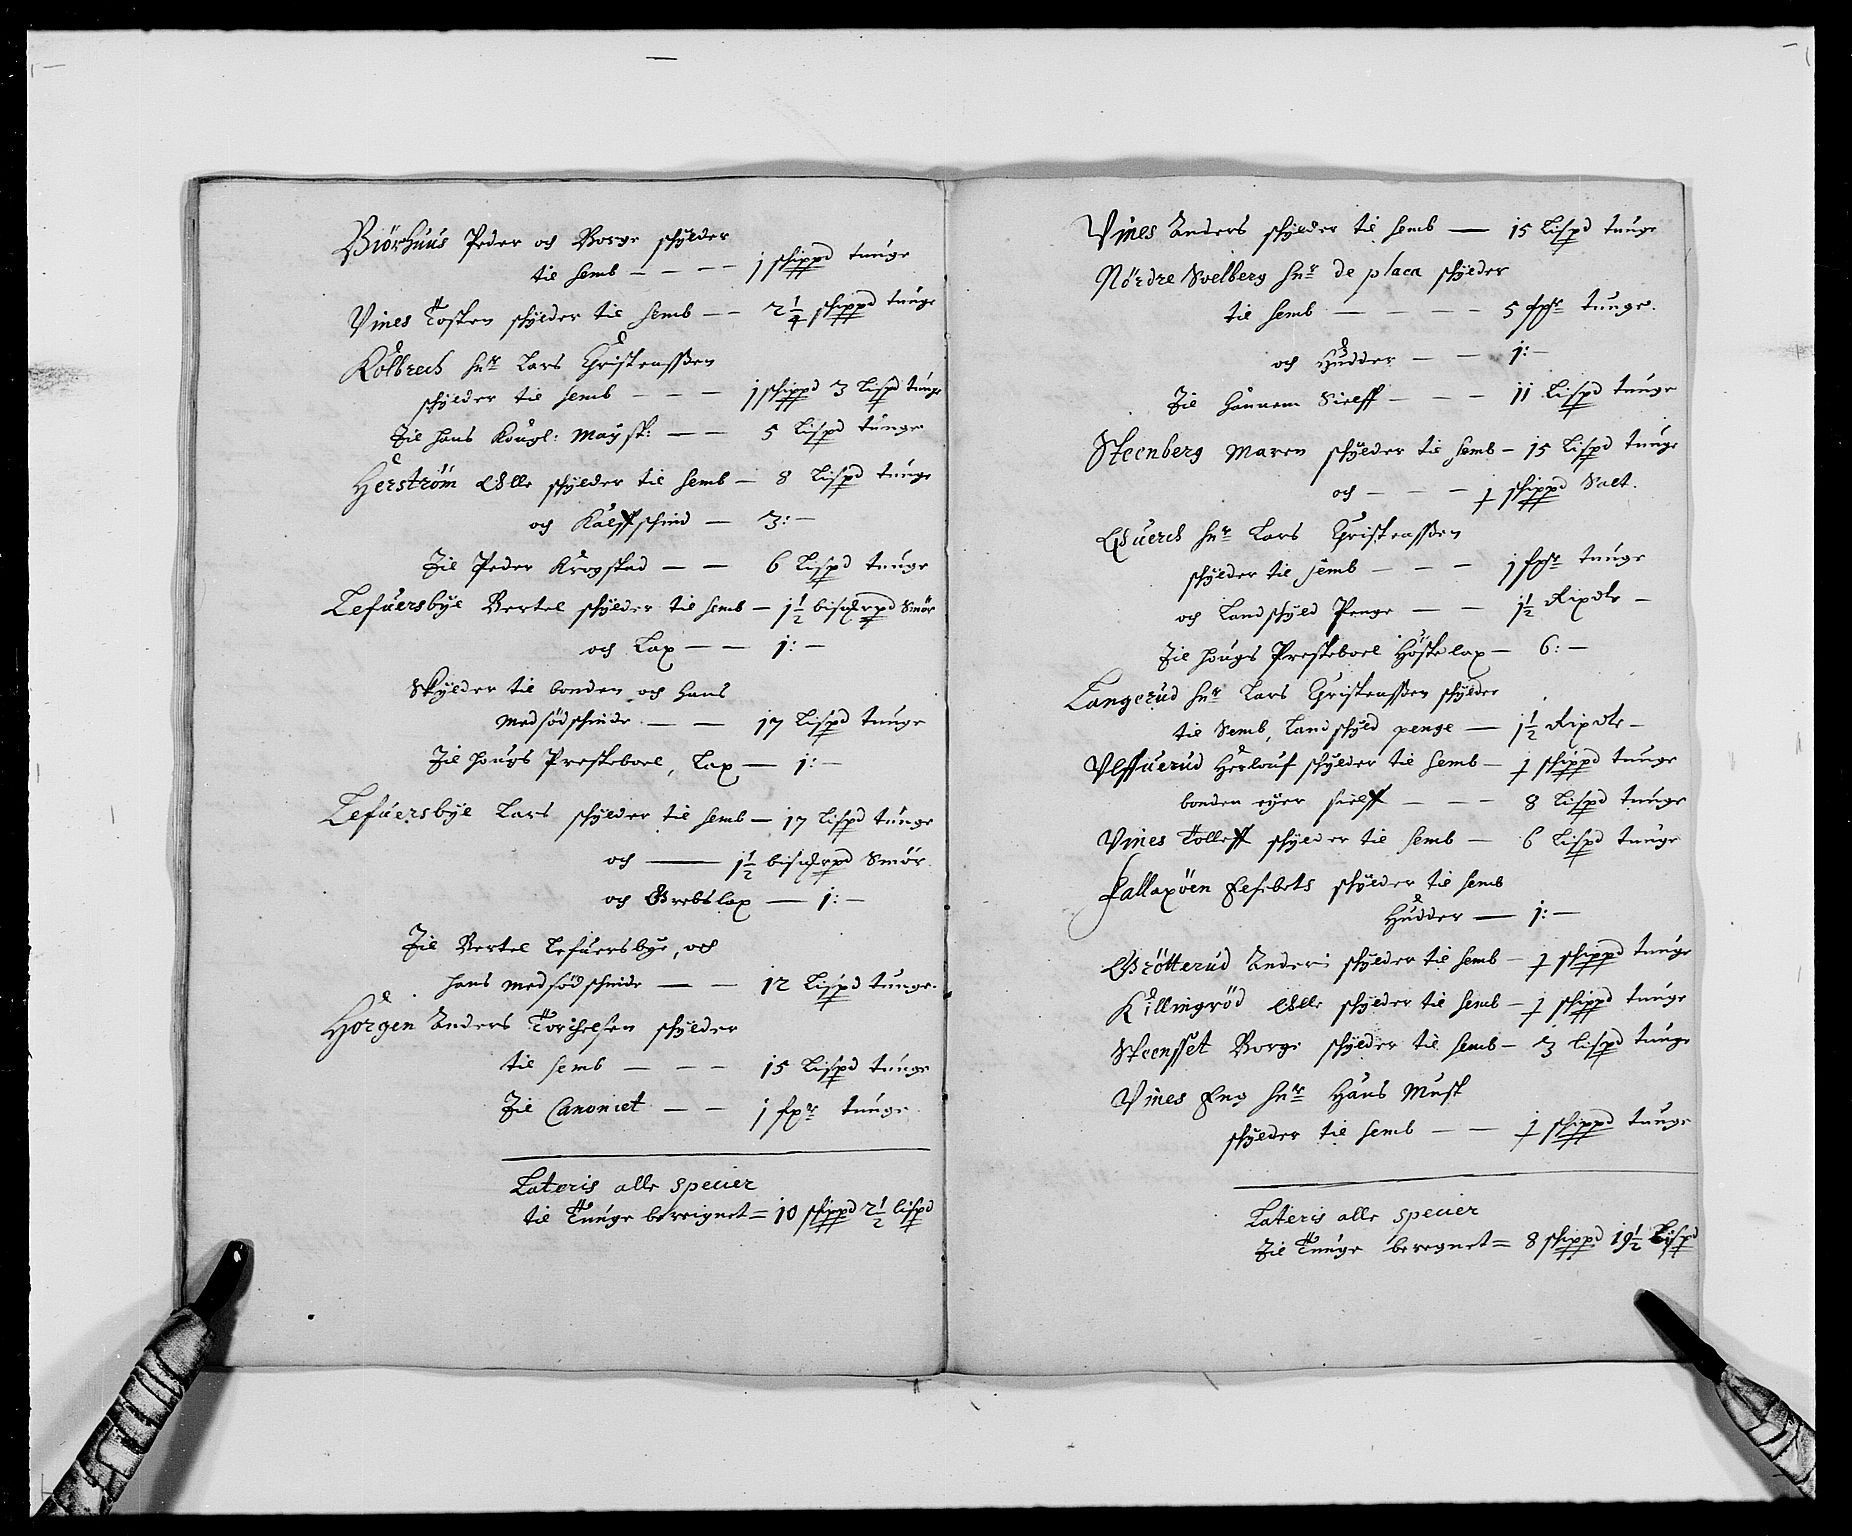 Biörhuus Peder och Borge schylder
til Semb - - - - 1 schippd tunge
Vines Tosten schylder til Semb - - 2 1/4 schippd tunge
Kolbrech hr Lars Christenssen
schylder til Semb - - - 1 schippd 3 Lispd tunge
Til hans Kongl: Mayst: - - 5 Lispd tunge
Herström Olle schylder til Semb - 8 Lispd tunge
och Kalffschind - 3: -
Til Peder Krogstad - - 6 Lispd tunge
Lefuersbye Bertel schylder til Semb - 1 1/2 bismerpd Smör
och Lax - - 1: -
Schylder til bonden och hans
medsödschinde - - 17 Lispd tunge
Til Hougs Presteboel, Lax - 1: -
Lefuersbye Lars schylder til Semb - 17 Lispd tunge
och - 1 1/2 bismerpd Smör
och Grebslax - 1: -
Til Bertel Lefuersbye, och
hans medsödschinde - - 12 Lispd tunge
Horgen Anders Torchelsen schylder
til Semb - - - 15 Lispd tunge
Til Canoniet - - 1 fxr tunge
Lateris alle specier
til Tunge bereignet = 10 schippd 2 1/2 lispd
Vines Anders schylder til Semb - 15 Lispd tunge
Nördre Svelberg hr de place schylder
til Semb - - - - 5 tunge.
och Hudder - - 1: -
Til hannem Sielff - - - 11 Lispd tunge
Steenberg Maren schylder til Semb - 15 Lispd tunge
och - - - 1 schippd Salt.
hr Lars Christenssen
schylder til Semb - - - 1 tunge
och Landschyld Penge - - 1 1/2 Rixdlr -
Til Hougs Presteboel Höstelax - 6: -
Langerud hr Lars Christenssen schylder
til Semb, Landschyld penge - 1 1/2 Rixdlr -
Vlffuerud Herlouf schylder til Semb - 1 schippd tunge
bonden eyer sielff - - - 8 Lispd tunge
Vines Tolleff schylder til Semb - 6 Lispd tunge
Fallaxöen Elsebets schylder til Semb
Hudder - 1: -
Grötterud Anders schylder til Semb - 1 schippd tunge
Killingröd Olle schylder til Semb - 1 schippd tunge
Steensset Borge schylder til Semb - 13 lispd tunge
Vines Eng hr Hans Must
schylder til Semb - - 1 schippd tunge
Lateris alle specier
Til Tunge beregnet = 8 schippd 19 1/2 Lispd